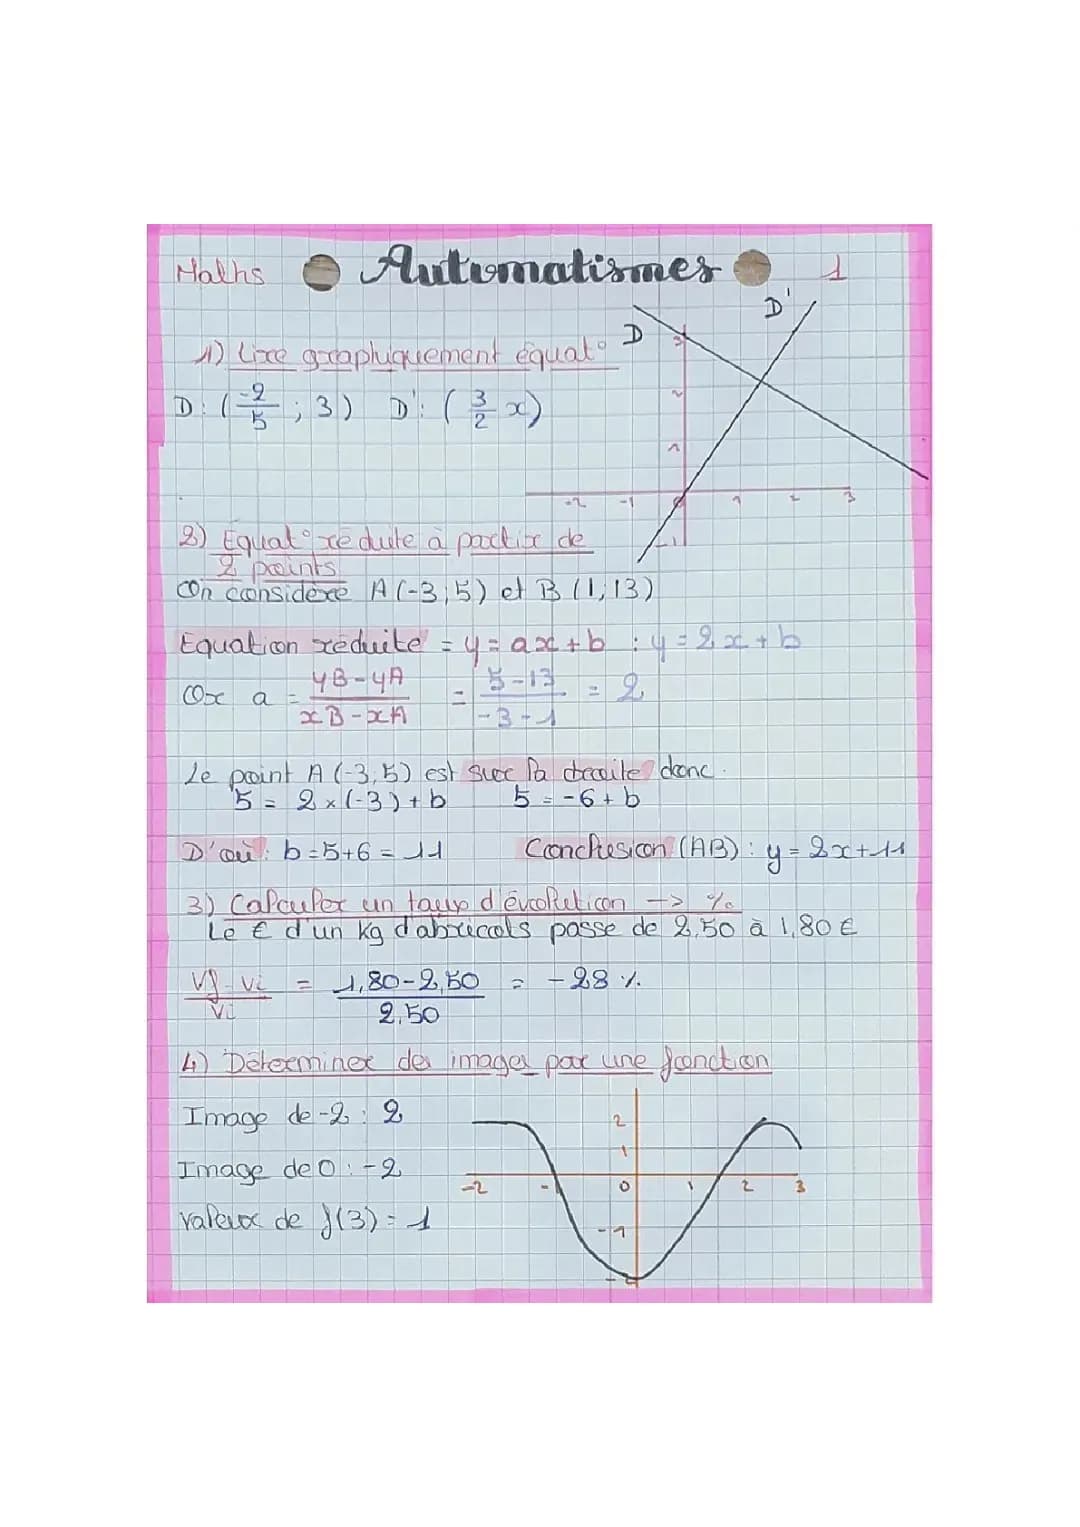 Maths Automatismes 1
D D'
1) Lire graphiquement équat°
D: (-2/5 ; 3) D': (3/2 x)
3
2
1
-2 -1 0 1 2 3
-1
2) Equat° réduite à partir de
2 points
On considère A(-3;5) et B(1;13)
Equation réduite = y = ax + b : y = 2x + b
Or a = yB-yA/xB-xA = 5-13/-3-1 = 2
Le point A(-3,5) est sur la droite donc.
5 = 2×(-3)+b 5 = -6+b
D'où : b=5+6 = 11 Conclusion (AB) : y = 2x+11
3) Calculer un taux d'évolution -> %
Le € d'un kg d'abricots passe de 2,50 à 1,80 €
Vf-Vi/Vi = 1,80-2,50/2,50 = -28 %.
4) Déterminer des images par une fonction
Image de -2 : 2
Image de 0 : -2
Valeur de f(3) = 1
2
1
-2 -1 0 1 2 3
-1
-2